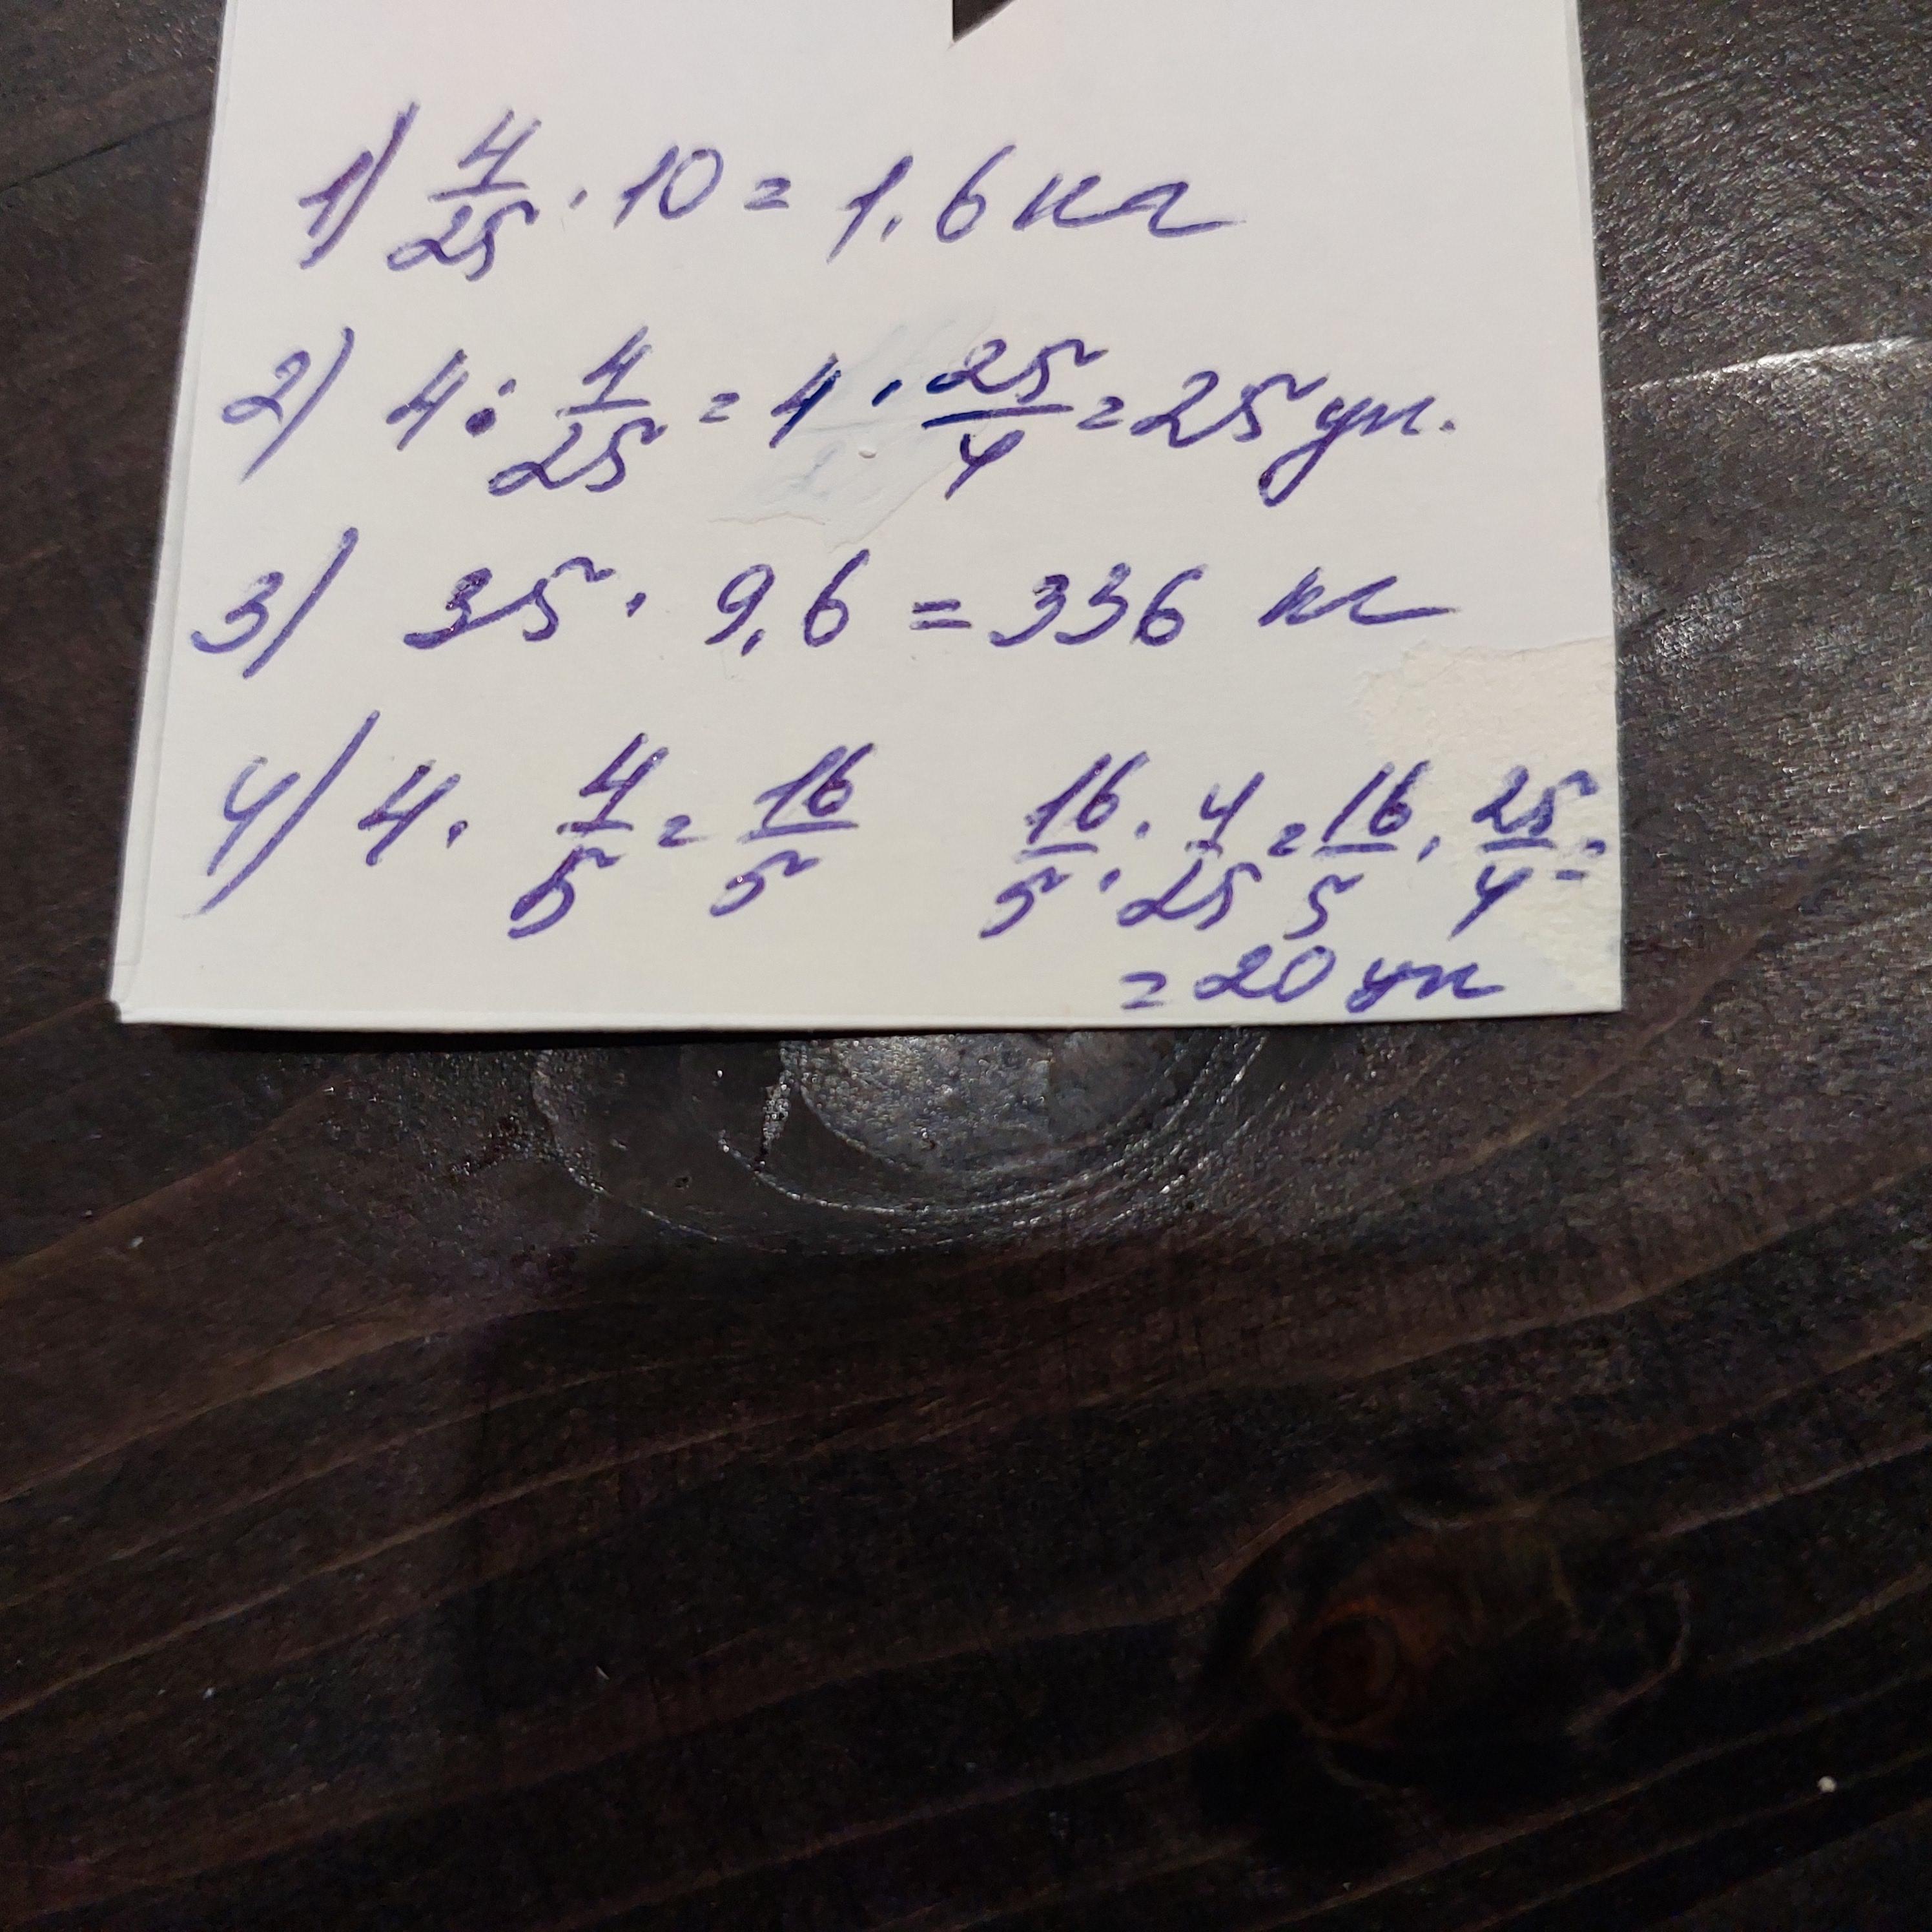 1) 4/25 · 10 = 1,6 кг
2) 4 : 4/25 = 4 · 25/4 = 25 уп.
3) 35 · 9,6 = 336 кг
4) 4 · 4/5 = 16/5 16/5 : 4/25 = 16/5 · 25/4 =
= 20 уп